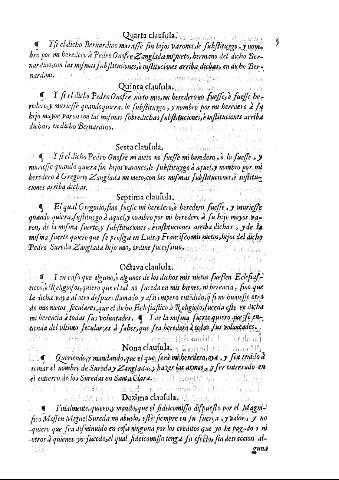 Quarta clausula.
¶ Y si el dicho Bernardino muriesse sin hijos varones, le substituygo, y nom-
bro por mi heredero à Pedro Onofre Zanglada mi nieto, hermano del dicho Ber-
nardino, con las mismas substituciones, è instituciones arriba dichas, en dicho Ber-
nardino.
Quinta clausula.
¶ Y si el dicho Pedro Onofre nieto mio, mi heredero no fuesse, ò fuesse he-
redero, y muriesse quando quiera, le substituygo, y nombro por mi heredero à su
hijo mayor varon con las mismas sobredichas substituciones, è instituciones arriba
dichas, en dicho Bernardino.
Sexta clausula.
¶ Y si el dicho Pedro Onofre mi nieto no fuesse mi heredero, ò lo fuesse, y
muriesse quando quiera sin hijos, substituygo à aquel, y nombro por mi
heredero à Gregorio Zanglada mi nieto, con las mismas substituciones, è institu-
ciones arriba dichas.
Septima clausula.
¶ El qual Gregorio, sino fuesse mi heredero, ò heredero fuesse, y muriesse
quando quiera, substituygo à aquel, y nombro por mi heredero à su hijo mayor va-
ron, de la misma suerte, y substituciones, è instituciones arriba dichas, y de la
misma suerte quiero que se prosiga en Luis, y Francisco mis nietos, hijos del dicho
Pedro Sureda Zanglada hijo mio, ordine successivo.
Octava clausula.
¶ Y en caso que alguno, ò algunos de los dichos mis nietos fuessen Eclesias-
tico, ò Religiosos, quiero que el tal no suceda en mis bienes, ni herencia, sino que
la dicha vaya al otro despues llamado, y assi impero entendido, q̃ si no huviesse otro
de mis nietos, seculares, que el dicho Eclesiastico ò Religioso suceda este en dicha
mi herencia à todas sus voluntades. ¶ Y de la misma suerte quiero que sea en-
tendido del ultimo secular, es à saber, que sea heredero à todas sus voluntades.
Nona clausula.
¶ Queriendo, y mandando, que el que serà mi heredero, aya, y sea tenido à
tomar el nombre de Sureda y Zanglada, y hazer las armas, y ser enterrado en
el entierro de los Suredas en Santa Clara.
Dezima clausula.
¶ Finalmente, quiero, y mando, que el fideicomisso dispuesto por el Magni-
fico Mossen Miguel Sureda mi abuelo, estè siempre en su fuerça, y valor, y no
quiero que sea disminuido en cosa ninguna por los creditos que yo he pagado, ni
otros à quienes yo sucedo, el qual fideicomisso tenga su efecto, sin detraccion al-
guna